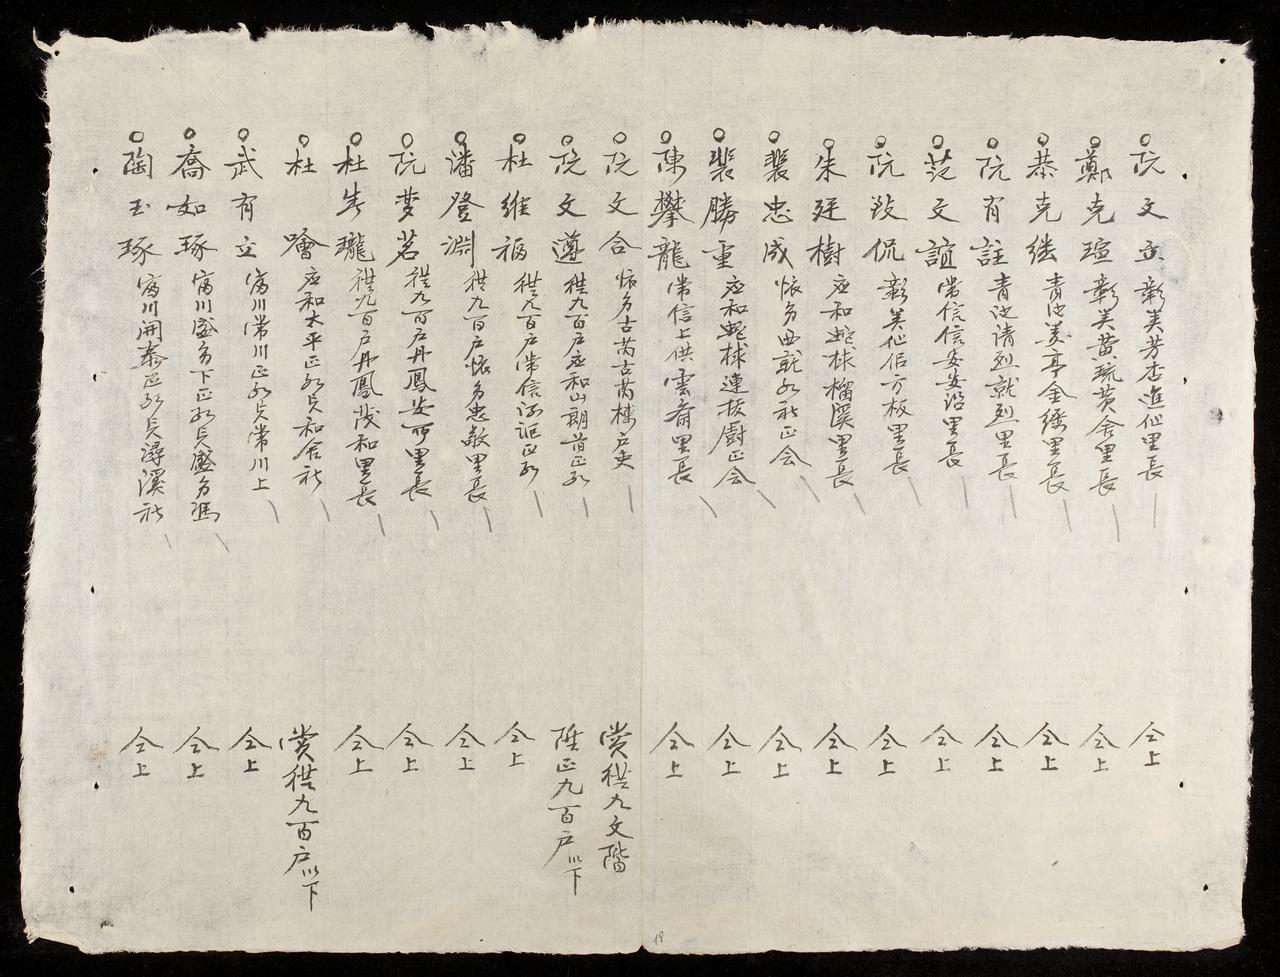 阮文立 彰美芳杏進仙里長 仝上
鄭克瑄 彰美黄琉黄舍里長 仝上
恭克継 青池姜亭金縷里長 仝上
阮有註 青池清烈就烈里長 仝上
范文誼 常信信安安沼里長 仝上
阮致侃 彰美仙侶方板里長 仝上
朱廷樹 應和 榴溪里長 仝上
裴忠成 懷多西就 社正会 仝上
裴勝重 應和 連板廚正会 仝上
陳攀龍 常信上供雲齋里長 仝上
阮文合 懷多古芮古芮 户吏 賞從九文階
阮文遵 從九百户應和山朗 陞正九百户以下
杜維福 從九百户常信 仝上
潘登淵 從九百户懷多忠敏里長 仝上
阮夢茗 從九百户丹鳳安所里長 仝上
杜 瓏 從九百户丹鳳茂和里長 仝上
杜噲 應和太平 和舍社 賞從九百户以下
武有立 富川常川 常川上 仝上
喬如琢 富川盛多下 盛多馮 仝上
陶玉琢 富川開泰 潯溪社 仝上
19